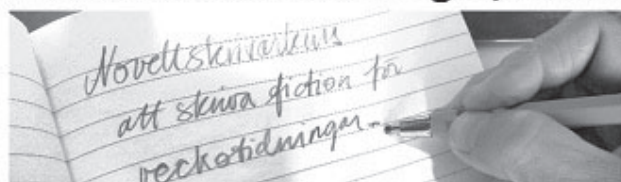 Novellskrivarkurs
att skriva fiction för
veckotidningar-